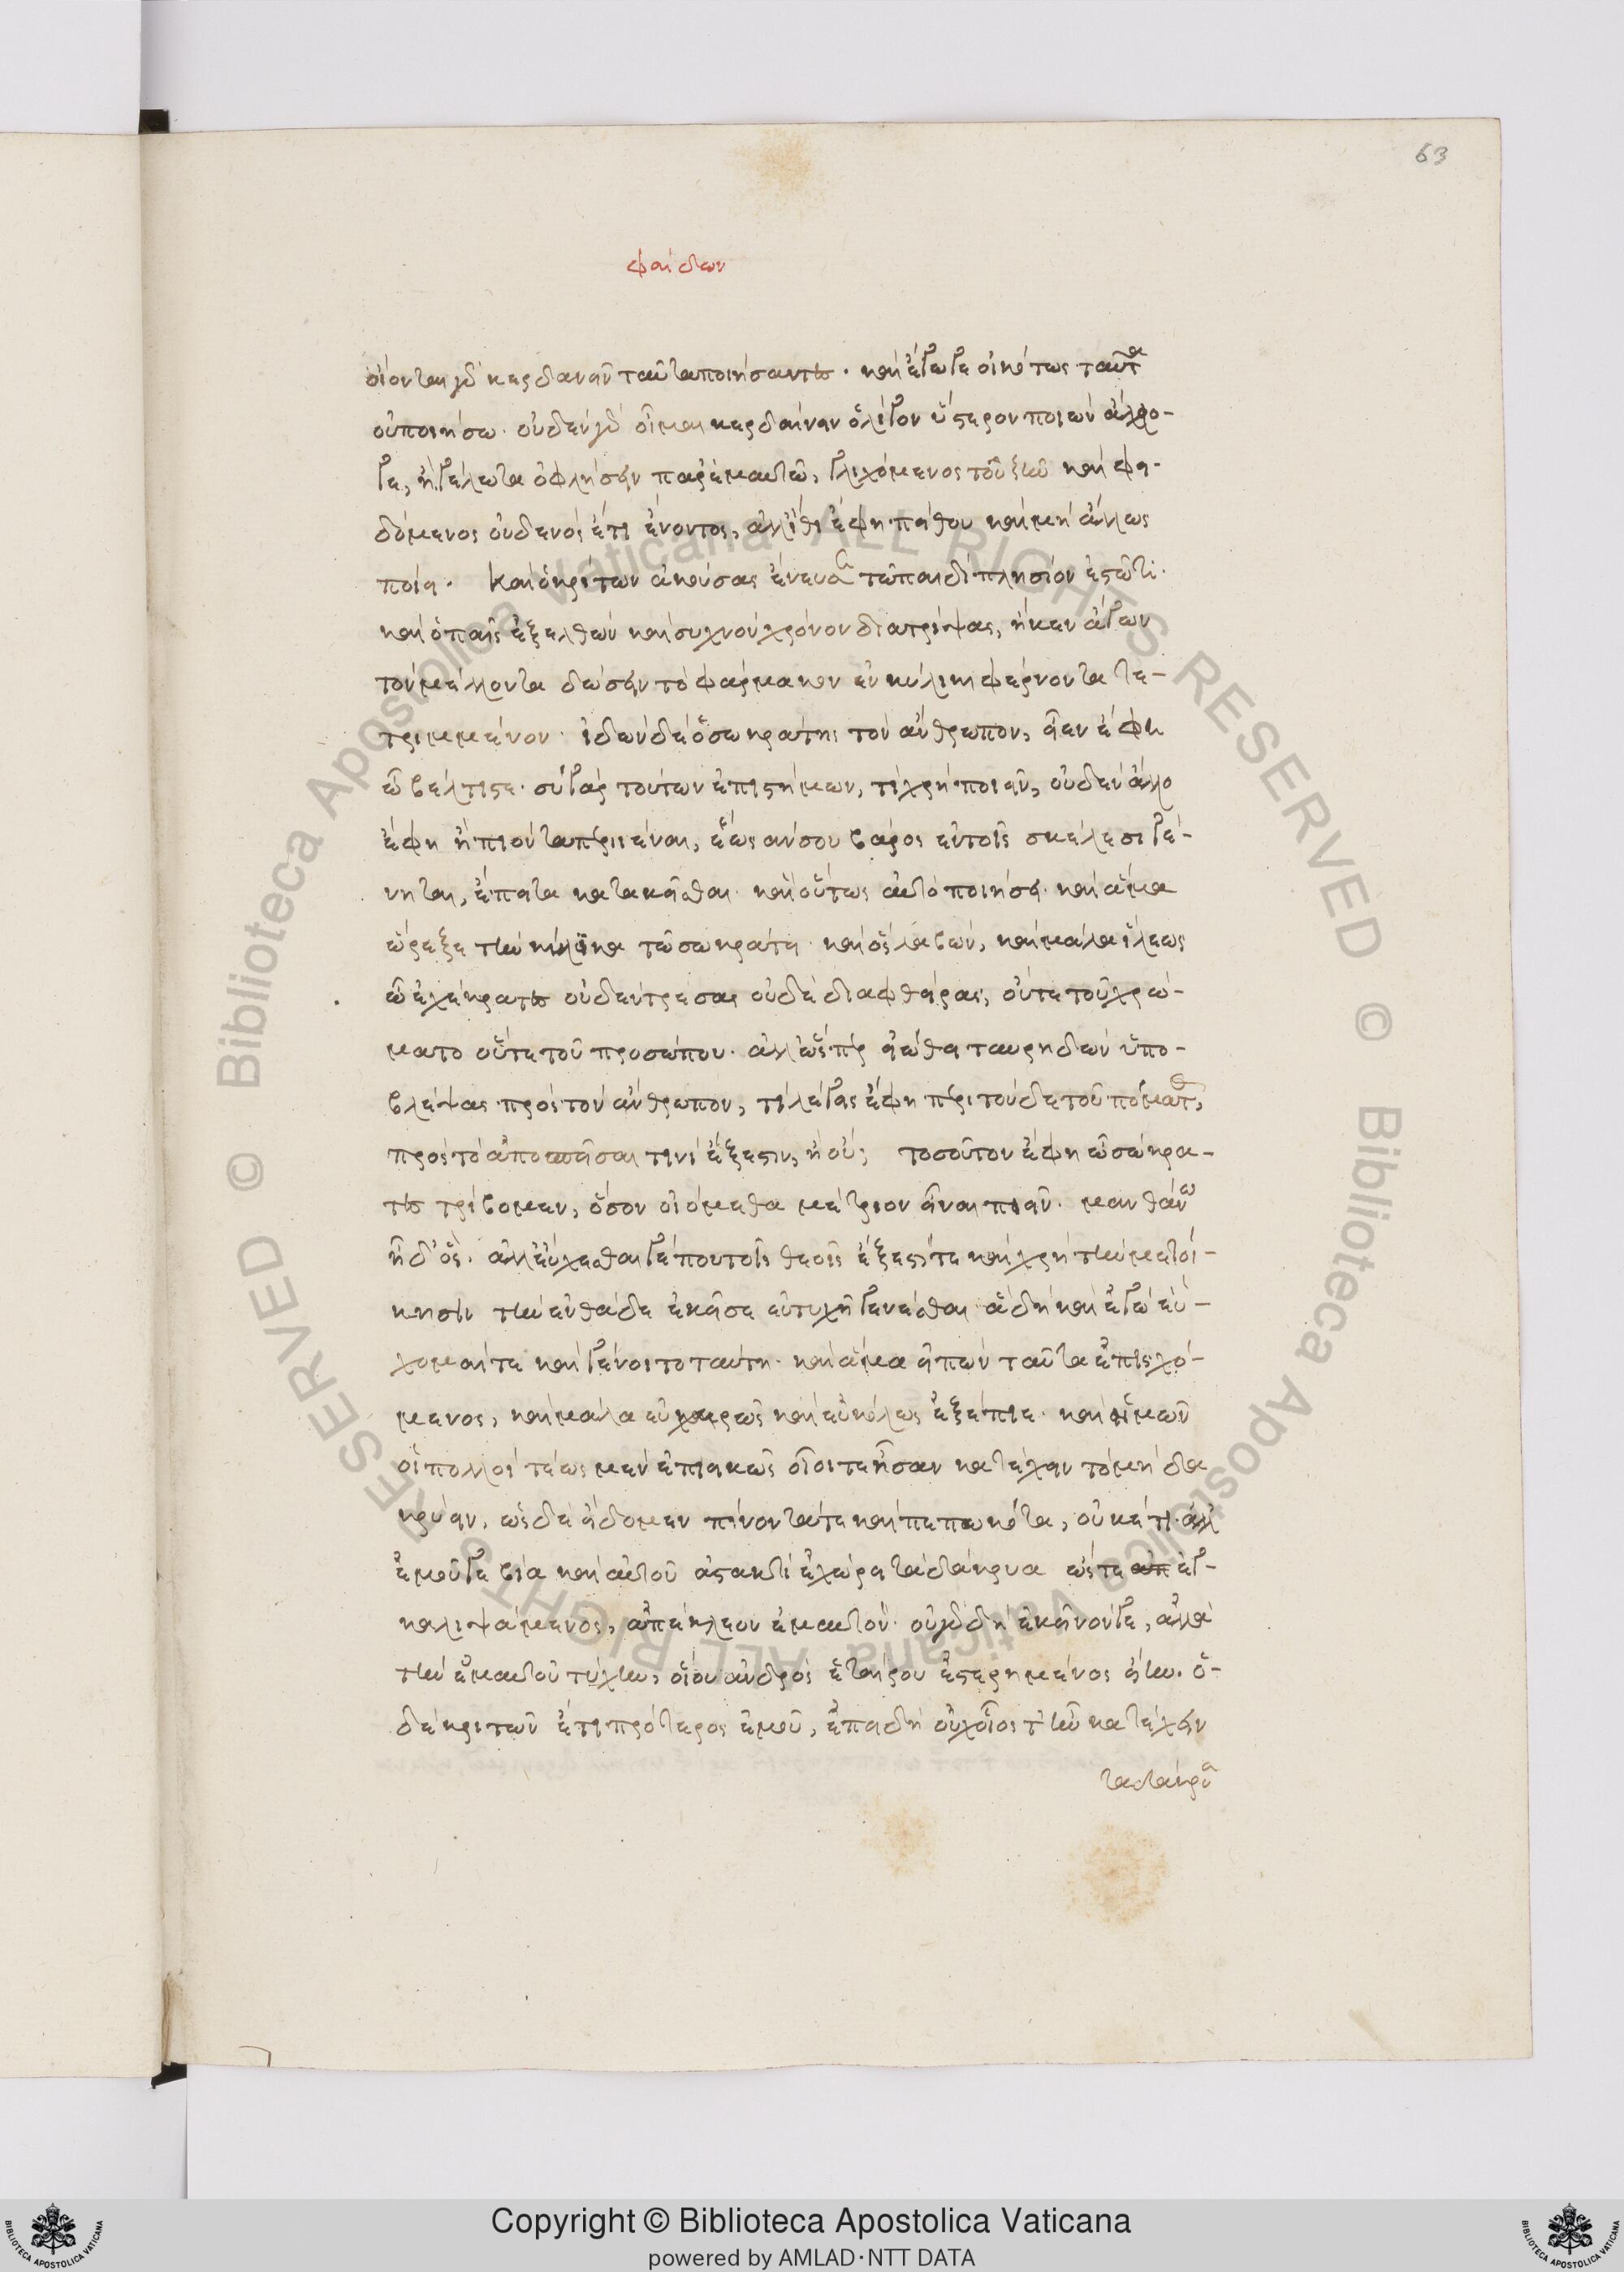 63
φαίδων
οἴονται γὰρ κερδανεῖν ταῦτα ποιήσαντες. καὶ ἔγωγε εἰκότως ταῦτα
οὐ ποιήσω. οὐδὲν γὰρ οἶμαι κερδαίνειν ὀλίγον ὕστερον ποιὼν ἄλλο-
γε, ἢ γέλωτα ὀφλήσειν παρ' ἐμαυτῶ, γλιχόμενος τοῦ ζῆν καὶ φει-
δόμενος οὐδενὸς ἔτι ἐνόντος, ἀλλ' ἴθι ἔφη πείθου καὶ μὴ ἄλλως
ποίει. Καὶ ὁ κρίτων ἀκούσας ἔνευσε τῶ παιδὶ πλησίον ἑστῶτι.
καὶ ὁ παῖς ἐξελθὼν καὶ συχνὸν χρόνον διατρίψας, ἧκεν ἄγων
τὸν μέλλοντα δώσειν τὸ φάρμακον ἐν κύλικι φέρνοντα τε-
τριμμένον. ἰδὼν δὲ ὁ σωκράτης τὸν ἄνθρωπον, εἶεν ἔφη
ὦ βέλτιστε. σὺ γὰρ τούτων ἐπιστήμων, τί χρὴ ποιεῖν, οὐδὲν ἄλλο
ἔφη ἢ πιόντα περιιέναι, ἕως ἄν σου βάρος ἐν τοῖς σκέλεσι γέ-
νηται, ἔπειτα κατακεῖσθαι. καὶ οὕτως αὐτὸ ποιήσει. καὶ ἅμα
ὤρεξε τὴν κύλικα τῶ σωκράτει. καὶ ὃς λαβὼν, καὶ μάλα ἵλεως
ὦ ἐχέκρατες οὐδὲν τρέσας οὐδὲ διαφθείρας, οὔτε τοῦ χρώ-
ματο οὔτε τοῦ προσώπου. ἀλλ' ὥσπερ εἰώθει ταυρηδὸν ὑπο-
βλέψας πρὸς τὸν ἄνθρωπον, τί λέγεις ἔφη περὶ τοῦδε τοῦ πόματος,
πρὸς τὸ ἀποσπεῖσαι τινὶ ἔξεστιν, ἢ οὔ; τοσοῦτον ἔφη ὦ σώκρα-
τες τρίβομεν, ὅσον οἰόμεθα μέτριον εἶναι πιεῖν. μανθάνω
ἦ δ' ὅς. ἀλλ' εὔχεσθαι γέ που τοῖς θεοῖς ἔξεστί τε καὶ χρὴ τὴν μετοί-
κησιν τὴν ἐνθάδε ἐκεῖσε εὐτυχῆ γενέσθαι ἃ δὴ καὶ ἐγὼ εὔ-
χομαί τε καὶ γένοιτο ταύτη. καὶ ἅμα εἰπὼν ταῦτα ἐπισχό-
μενος, καὶ μάλα εὐχερῶς καὶ εὐκόλως ἐξέπιε. καὶ ἡμῶν
οἱ πολλοὶ τέως μὲν ἐπιεικῶς οἷοι τε ἦσαν κατέχειν τὸ μὴ δα
κρύειν, ὡς δὲ εἴδομεν πίνοντά τε καὶ πεπωκότα, οὐκέτι. ἀλλ'
ἐμοῦ γε βία καὶ αὐτοῦ ἀστακτὶ ἐχώρει τὰ δάκρυα ὥστε ἐγ-
καλυψάμενος, ἀπέκλεον ἐμαυτόν. οὐ γὰρ δὴ ἐκεῖνόν γε, ἀλλὰ
τὴν ἐμαυτοῦ τύχην, οἵου ἀνδρὸς ἑταίρου ἐστερημένος εἴην. ὁ-
δὲ κρίτων ἔτι πρότερος ἐμοῦ, ἐπειδὴ οὐχ οἷος τ' ἦν κατέχειν
τὰ δάκρυα
© Biblioteca Apostolica Vaticana ALL RIGHTS RESERVED © Biblioteca Apostolica Vaticana ALL RIGHTS RESERVED
BIBLIOTECA APOSTOLICA VATICANA
Copyright © Biblioteca Apostolica Vaticana
powered by AMLAD·NTT DATA
BIBLIOTECA APOSTOLICA VATICANA